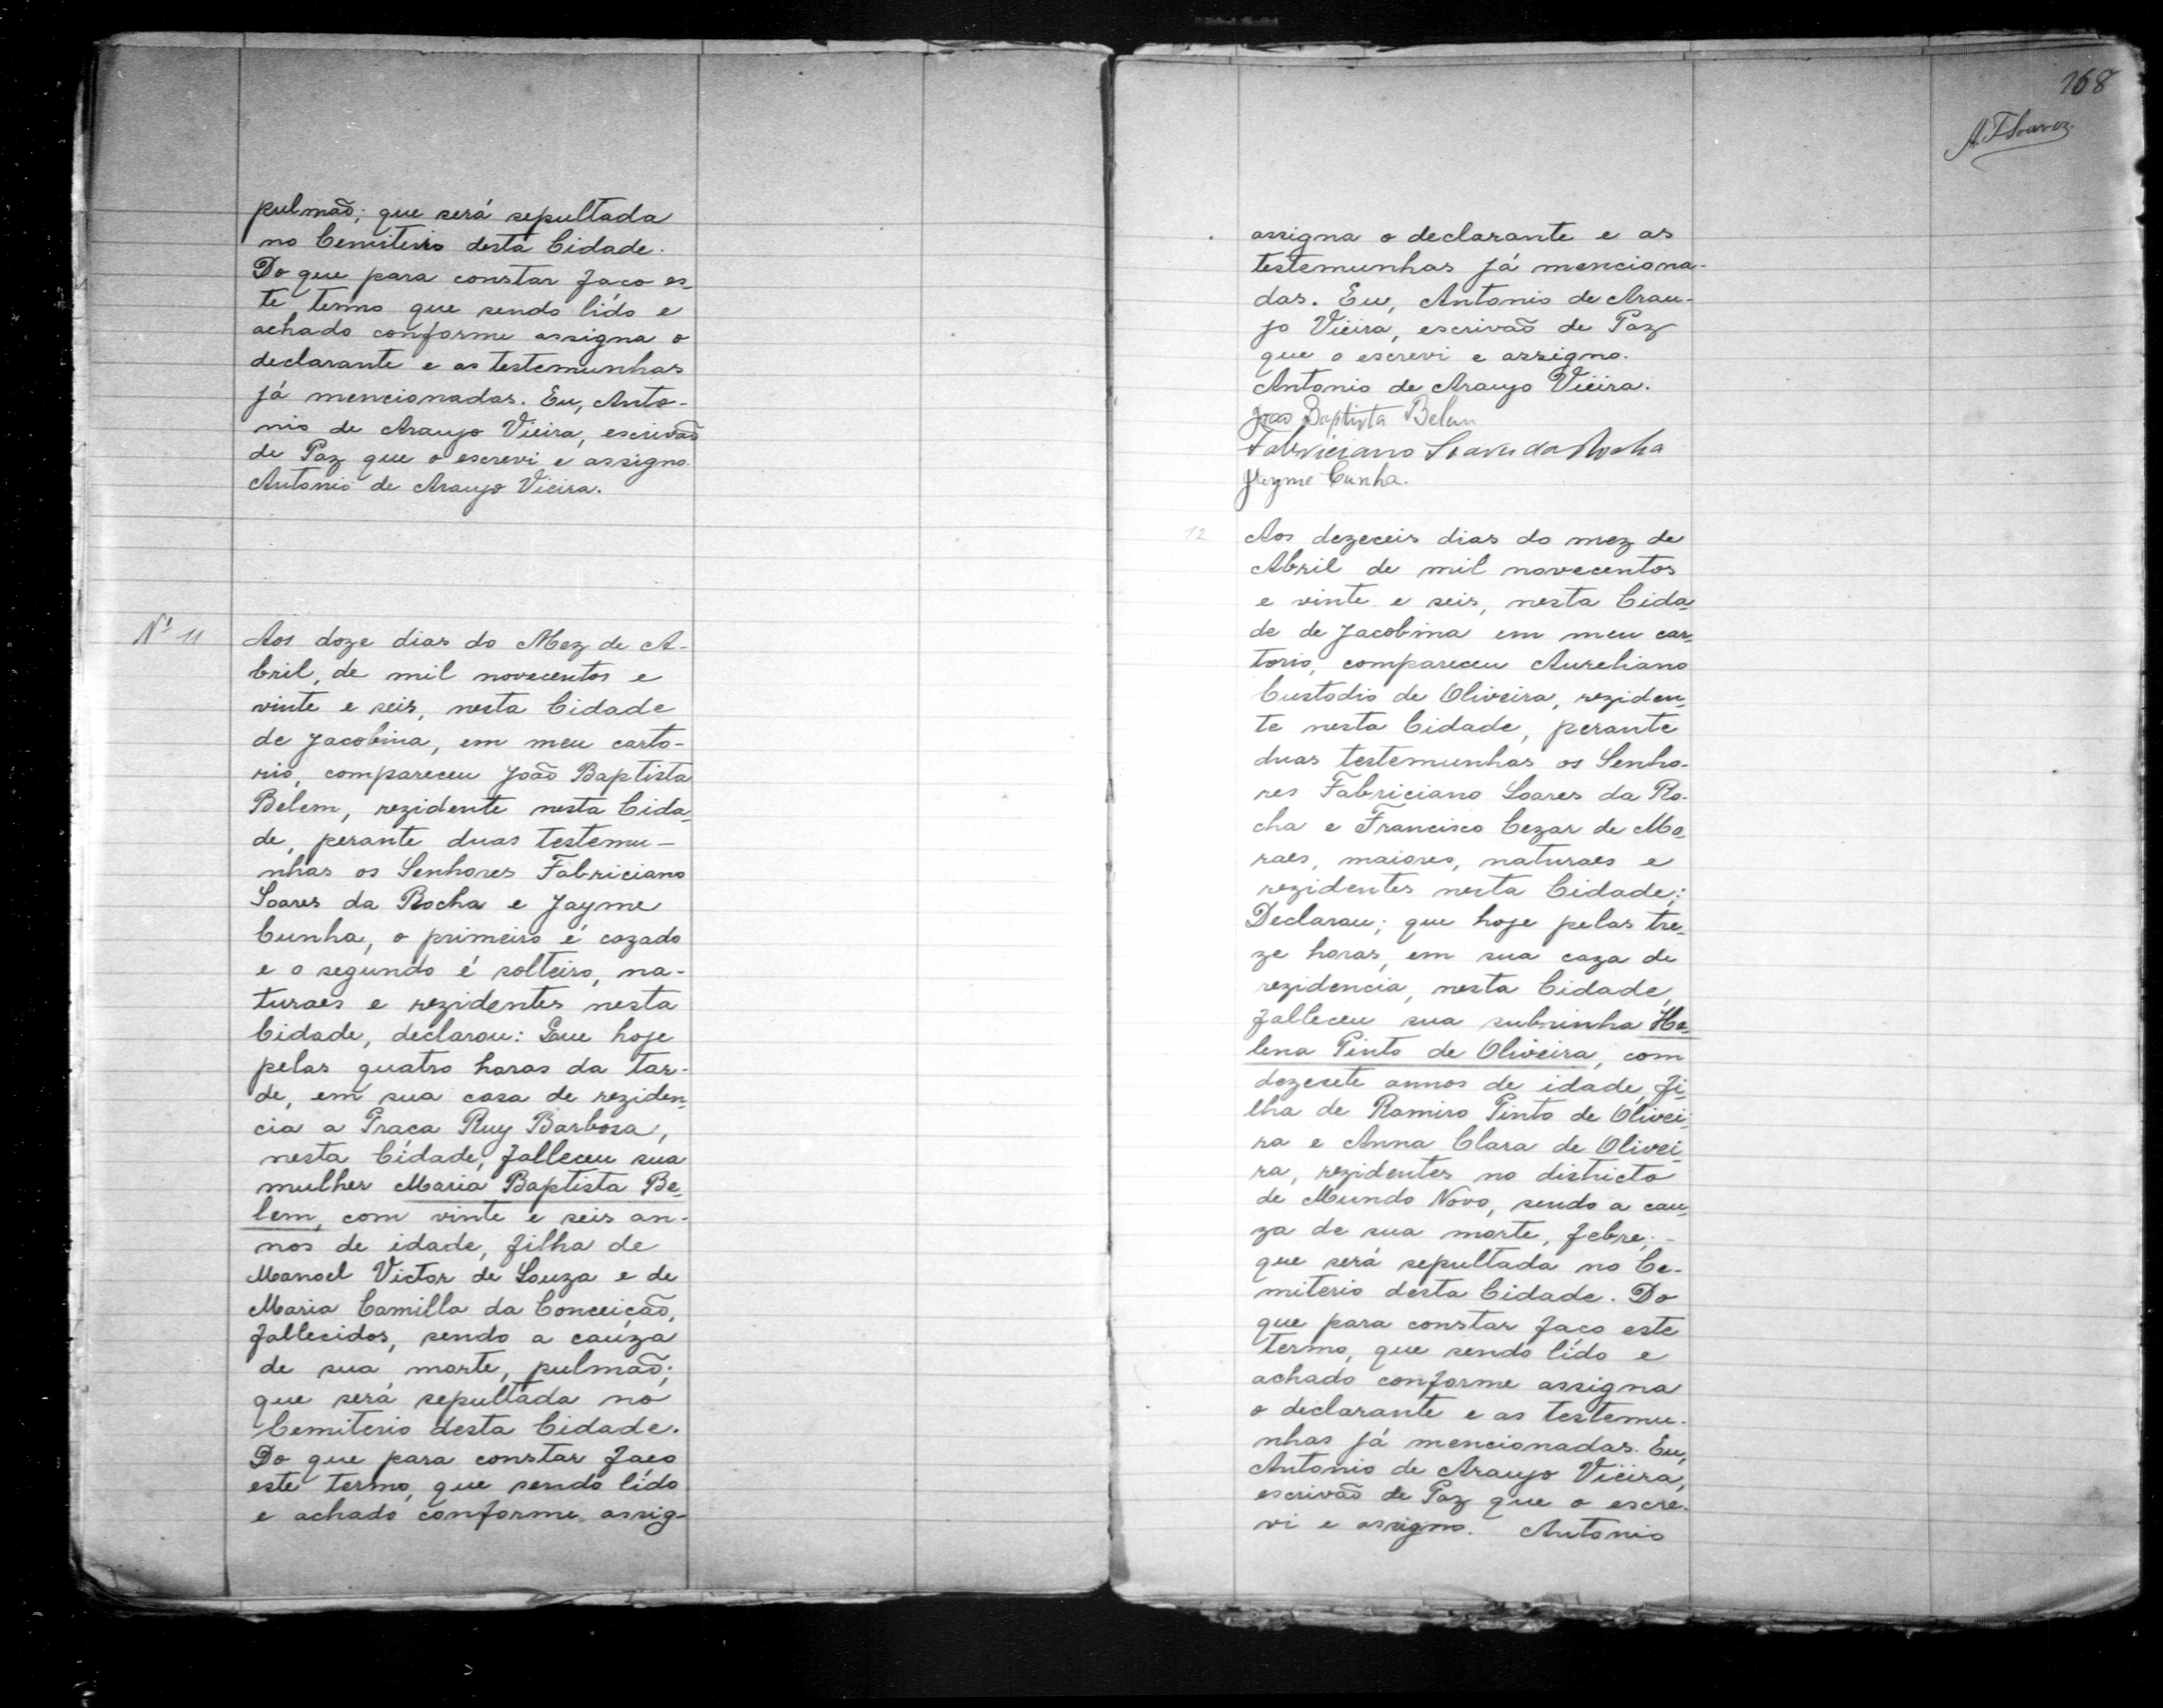 pulmão; que será sepultada
no Cemiterio desta Cidade.
Do que para constar faco es-
te termo que sendo lído e
achado conforme assigna o
declarante e as testemunhas
já mencionadas. Eu, Anto-
nio de Araujo Vieira, escrivão
de Paz que o escrevi e assigno.
Antonio de Araujo Vieira.
Nº 11
Aos doze dias do Mez de A-
bril, de mil novecentos e
vinte e seis, nesta Cidade
de Jacobina, em meu carto-
rio, compareceu João Baptista
Belem, rezidente nesta Cida-
de, perante duas testemu-
nhas os Senhores Fabriciano
Soares da Rocha e Jayme
Cunha, o primeiro é cazado
e o segundo é solteiro, na-
turaes e rezidentes nesta
Cidade, declarou: Que hoje
pelas quatro horas da tar-
de, em sua casa de reziden-
cia a Praca Ruy Barbosa,
nesta Cidade, falleceu sua
mulher Maria Baptista Be-
lem, com vinte e seis an-
nos de idade, filha de
Manoel Victor de Souza e de
Maria Camilla da Conceição,
fallecidos, sendo a cauza
de sua morte, pulmão;
que será sepultada no
Cemiterio desta Cidade.
Do que para constar faco
este termo, que sendo lído
e achado conforme assig-
168
A. T. Soares
assigna o declarante e as
testemunhas já menciona-
das. Eu, Antonio de Arau-
jo Vieira, escrivão de Paz
que o escrevi e assigno.
Antonio de Araujo Vieira.
João Baptista Belem
Fabriciano Soares da Rocha
Jayme Cunha.
12
Aos dezeceis dias do mez de
Abril de mil novecentos
e vinte e seis, nesta Cida-
de de Jacobina em meu car-
torio, compareceu Aureliano
Custodio de Oliveira, reziden-
te nesta Cidade, perante
duas testemunhas os Senho-
res Fabriciano Soares da Ro-
cha e Francisco Cezar de Mo-
raes, maiores, naturaes e
rezidentes nesta Cidade;
Declarou; que hoje pelas tre-
ze horas, em sua caza de
rezidencia, nesta Cidade,
falleceu sua subrinha He-
lena Pinto de Oliveira, com
dezesete annos de idade, fi-
lha de Ramiro Pinto de Olivei-
ra e Anna Clara de Olivei-
ra, rezidentes no districto
de Mundo Novo, sendo a cau-
za de sua morte, febre; -
que será sepultada no Ce-
miterio desta Cidade. Do
que para constar faco este
termo, que sendo lído e
achado conforme assigna
o declarante e as testemu-
nhas já mencionadas. Eu,
Antonio de Araujo Vieira,
escrivão de Paz que o escre-
vi e assigno. Antonio